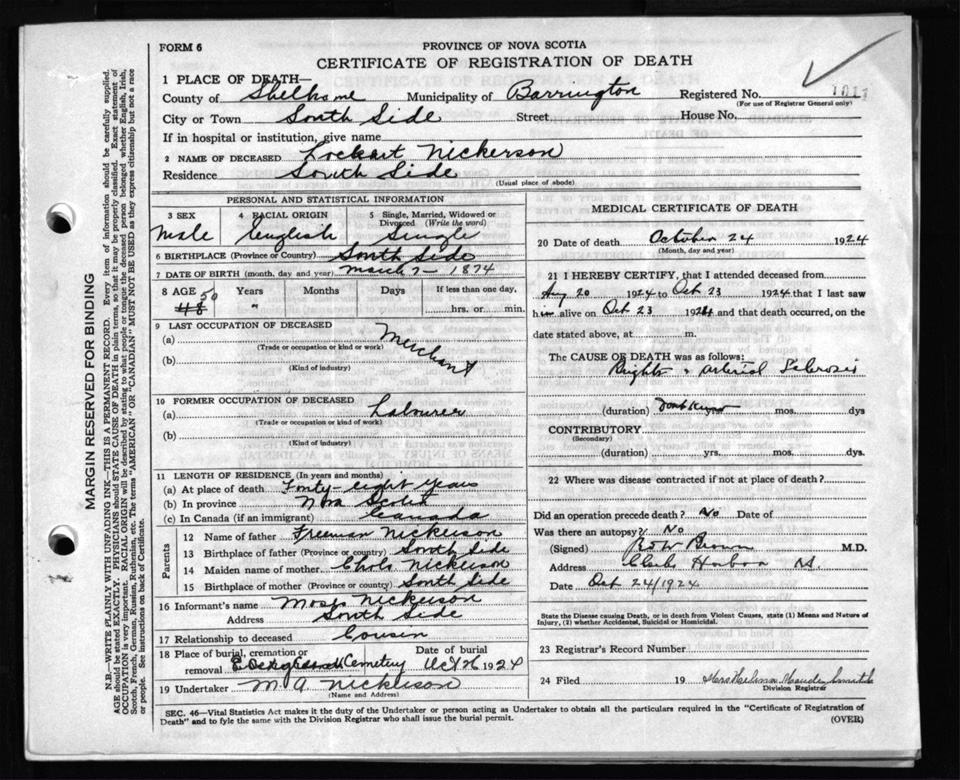 FORM 6
PROVINCE OF NOVA SCOTIA
CERTIFICATE OF REGISTRATION OF DEATH
1 PLACE OF DEATH—
County of Shelburne Municipality of Barrington Registered No. 1011
(For use of Registrar General only)
City or Town South Side Street House No.
If in hospital or institution, give name
2 NAME OF DECEASED Lockart Nickerson
Residence South Side
(Usual place of abode)
PERSONAL AND STATISTICAL INFORMATION
3 SEX 4 RACIAL ORIGIN 5 Single, Married, Widowed or Divorced (Write the word)
Male English Single
6 BIRTHPLACE (Province or Country) South Side
7 DATE OF BIRTH (month, day and year) March 7 - 1874
8 AGE Years Months Days If less than one day,
50
48 " hrs. or min.
9 LAST OCCUPATION OF DECEASED
(a) Merchant
(Trade or occupation or kind or work)
(b)
(Kind of industry)
10 FORMER OCCUPATION OF DECEASED
(a) Labourer
(Trade or occupation or kind of work)
(b)
(Kind of industry)
11 LENGTH OF RESIDENCE (In years and months)
(a) At place of death Forty-eight years
(b) In province Nova Scotia
(c) In Canada (if an immigrant) Canada
Parents
12 Name of father Freeman Nickerson
13 Birthplace of father (Province or country) South Side
14 Maiden name of mother Nickerson
15 Birthplace of mother (Province or country) South Side
16 Informant's name Moses Nickerson
Address South Side
17 Relationship to deceased Cousin
18 Place of burial, cremation or removal Cemetery Date of burial Oct 26 1924
19 Undertaker M A Nickerson
(Name and Address)
MEDICAL CERTIFICATE OF DEATH
20 Date of death October 24 1924
(Month, day and year)
21 I HEREBY CERTIFY, that I attended deceased from
Aug 20 1924 to Oct 23 1924 that I last saw
him alive on Oct 23 1924 and that death occurred, on the
date stated above, at m.
The CAUSE OF DEATH was as follows:
Brights + Arterial Sclerosis
(duration) Dont know mos. dys
CONTRIBUTORY
(Secondary)
(duration) yrs. mos. dys.
22 Where was disease contracted if not at place of death?
Did an operation precede death? No Date of
Was there an autopsy? No
(Signed) Brown M.D.
Address Clarks Harbor
Date Oct 24/1924
State the Disease causing Death, or in death from Violent Causes, state (1) Means and Nature of
Injury, (2) whether Accidental, Suicidal or Homicidal.
23 Registrar's Record Number
24 Filed 19 Maude Smith
Division Registrar
SEC. 46—Vital Statistics Act makes it the duty of the Undertaker or person acting as Undertaker to obtain all the particulars required in the "Certificate of Registration of
Death" and to fyle the same with the Division Registrar who shall issue the burial permit.
(OVER)
MARGIN RESERVED FOR BINDING
N.B.—WRITE PLAINLY WITH UNFADING INK—THIS IS A PERMANENT RECORD. Every item of information should be carefully supplied.
AGE should be stated EXACTLY. PHYSICIANS should STATE CAUSE OF DEATH in plain terms, so that it may be properly classified. Exact statement of
OCCUPATION is very important. RACIAL ORIGIN will be described by stating to what people or tongue the deceased person belonged whether English, Irish,
Scotch, French, German, Russian, Ruthenian, etc. The terms "AMERICAN" OR "CANADIAN" MUST NOT BE USED as they express citizenship but not a race
or people. See instructions on back of Certificate.